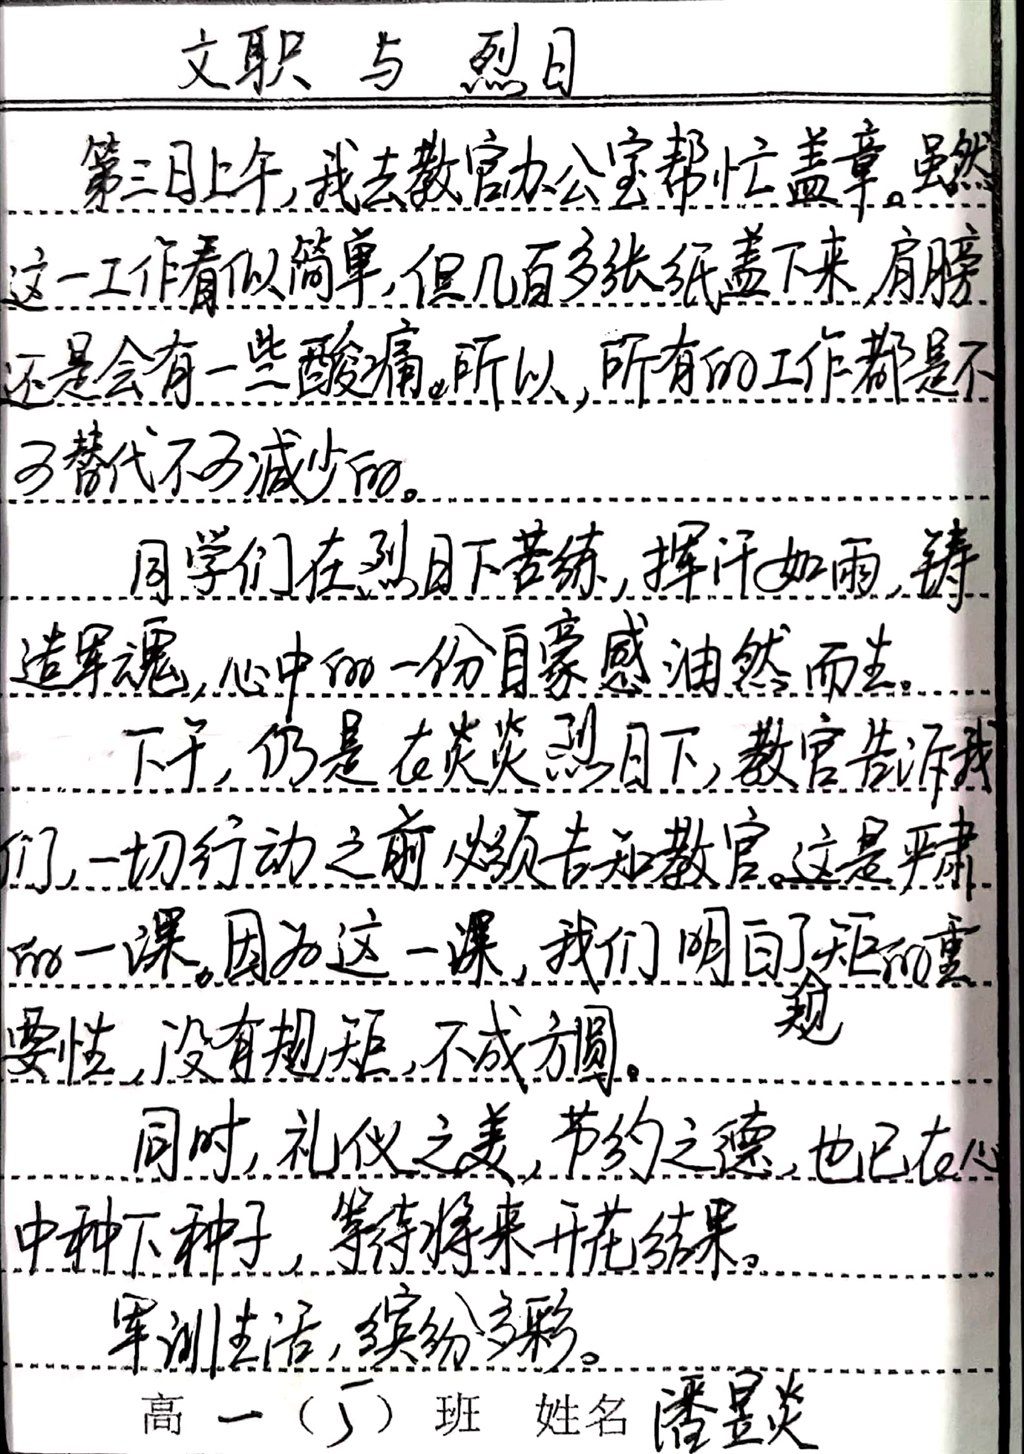 文职与烈日
第三日上午,我去教官办公室帮忙盖章。虽然
这一工作看似简单,但几百多张纸盖下来,肩膀
还是会有一些酸痛。所以,所有的工作都是不
可替代不可减少的。
同学们在烈日下苦练,挥汗如雨,铸
造军魂,心中的一份自豪感油然而生。
下午,仍是在炎炎烈日下,教官告诉我
们,一切行动之前必须告知教官。这是严肃
的一课。因为这一课,我们明白了规矩的重
要性,没有规矩,不成方圆。
同时,礼仪之美,节约之德,也已在心
中种下种子,等待将来开花结果。
军训生活,缤纷多彩。
高一(5)班 姓名 潘昱炎